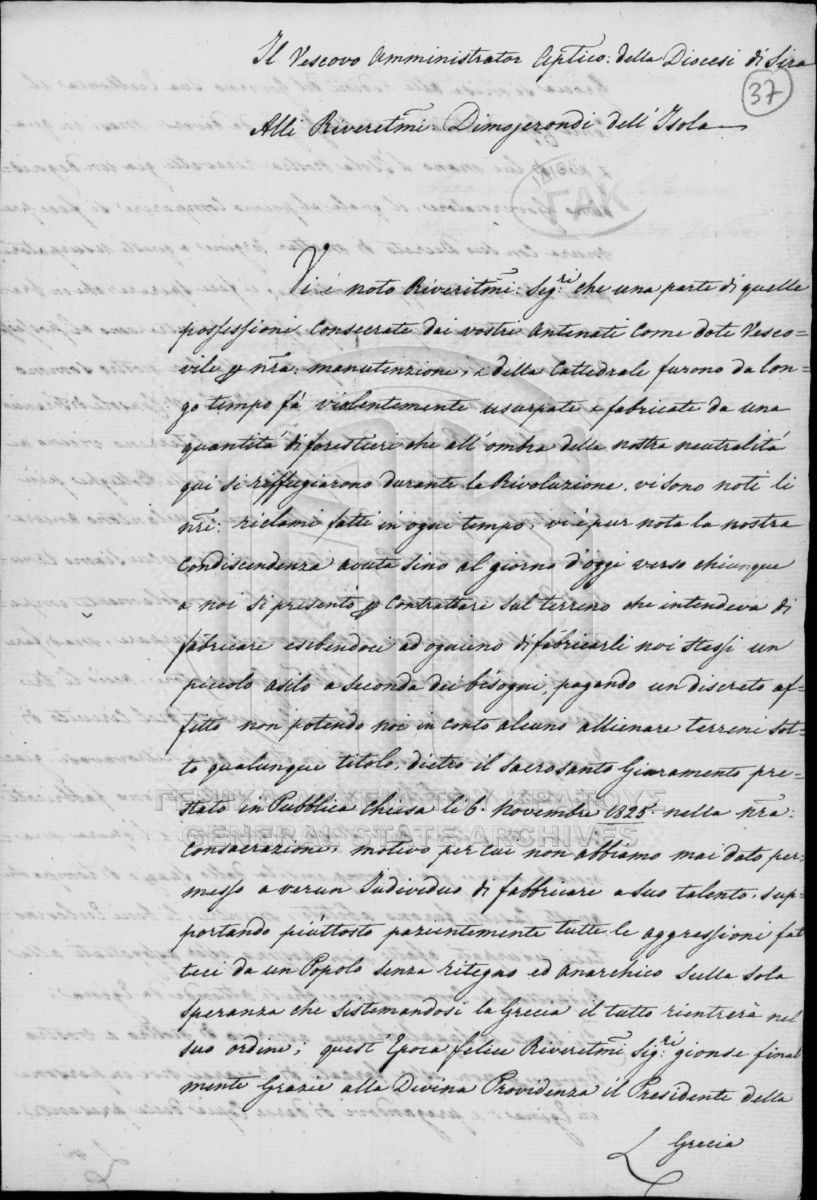 Il Vescovo Amministrator Aptico: della Diocesi di Sira
37
Alli Riveretmi: Dimogerondi dell' Isola
ΓΑΚ
Vi è noto Riveritmi: Sigri: che una parte di quelle
possessioni Consecrate dai vostri Antenati Come dote Vesco=
vile p nra: manutenzione, e della Cattedrale furono da lon=
go tempo fà violentemente usurpate e fabricate da una
quantità di forestieri che all' ombra della nostra neutralità
qui si riffugiarono durante la Rivoluzione. vi sono noti li
nri: riclami fatti in ogni tempo, vi è pur nota la nostra
Condiscendenza avuta sino al giorno d'oggi verso chiunque
a noi si presentò p Contrattare sul terreno che intendeva di
fabricare esebendoci ad ogniuno di fabricarli noi stessi un
piccolo asilo a seconda dei bisogni, pagando un discreto af=
fitto non potendo noi in conto alcuno allienare terreni sot=
to qualunque titolo, dietro il Sacrosanto Giuramento pre=
stato in Pubblica Chiesa li 6. Novembre 1825. nella nra:
Consacrazione, motivo per cui non abbiamo mai dato per=
messo a verun Individuo di fabbricare a suo talento, sup=
portando piùttosto pazientemente tutte le aggressioni fat=
teci da un Popolo senza ritegno ed Anarchico sulla sola
speranza che sistemandosi la Grecia il tutto rientrerà nel
suo ordine; quest' Epoca felice Riveretmi Sigri: gionse final
mente Grazie alla Divina Providenza il Presidente della
Grecia
ΓΕΝΙΚΑ ΑΡΧΕΙΑ ΤΟΥ ΚΡΑΤΟΥΣ
GENERAL STATE ARCHIVES